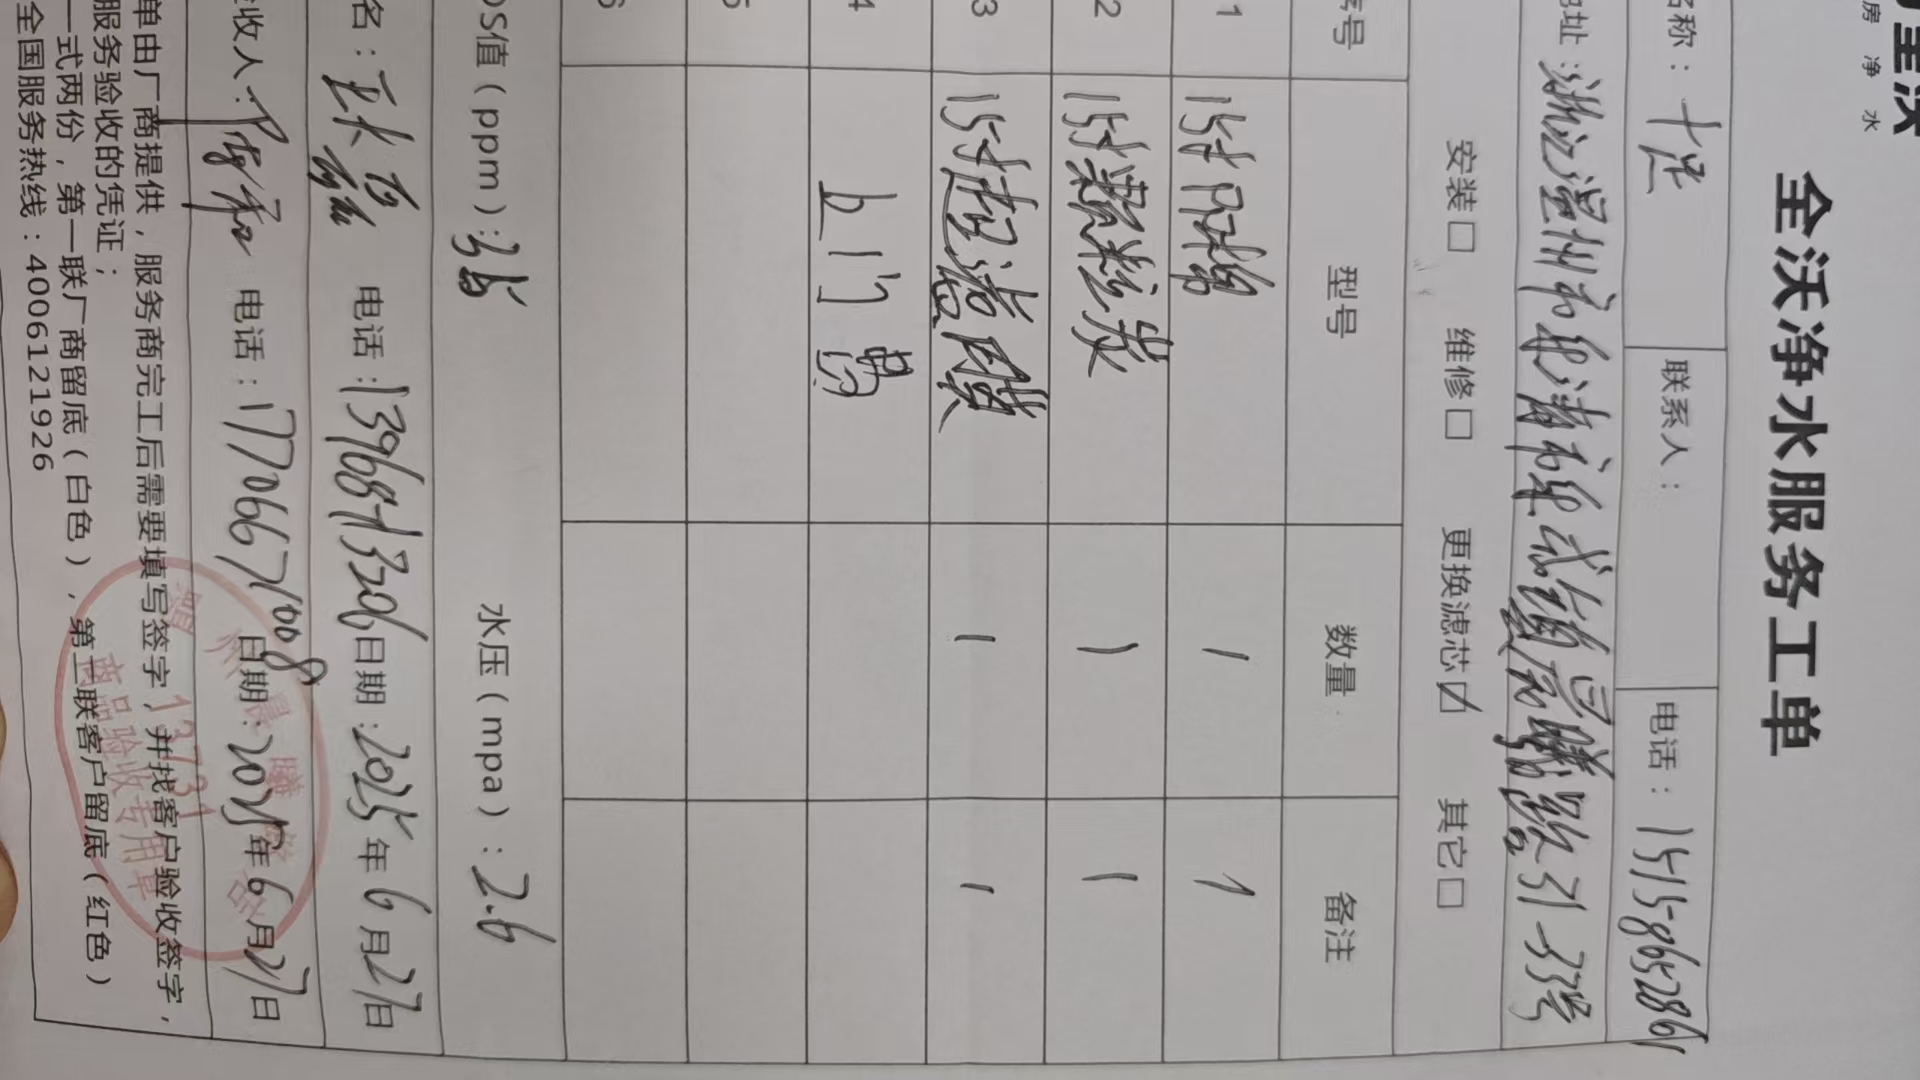 房净水
全沃净水服务工单
名称：十足 联系人： 电话：15158652861
地址：浙江温州市乐清市 31-33号
安装□ 维修□ 更换滤芯☑ 其它□
序号 型号 数量 备注
1 15寸PP棉 1 1
2 15寸颗粒炭 1 1
3 15寸超滤膜 1 1
4 上门费
5
6
DS值（ppm）：35 水压（mpa）：2.6
名： 电话：13968713206 日期：2025年6月27日
收人： 电话：17706671008 日期：2025年6月27日
单由厂商提供，服务商完工后需要填写签字，并找客户验收签字，
服务验收的凭证；
一式两份，第一联厂商留底（白色），第二联客户留底（红色）
全国服务热线：4006121926
13731
商品验收专用章